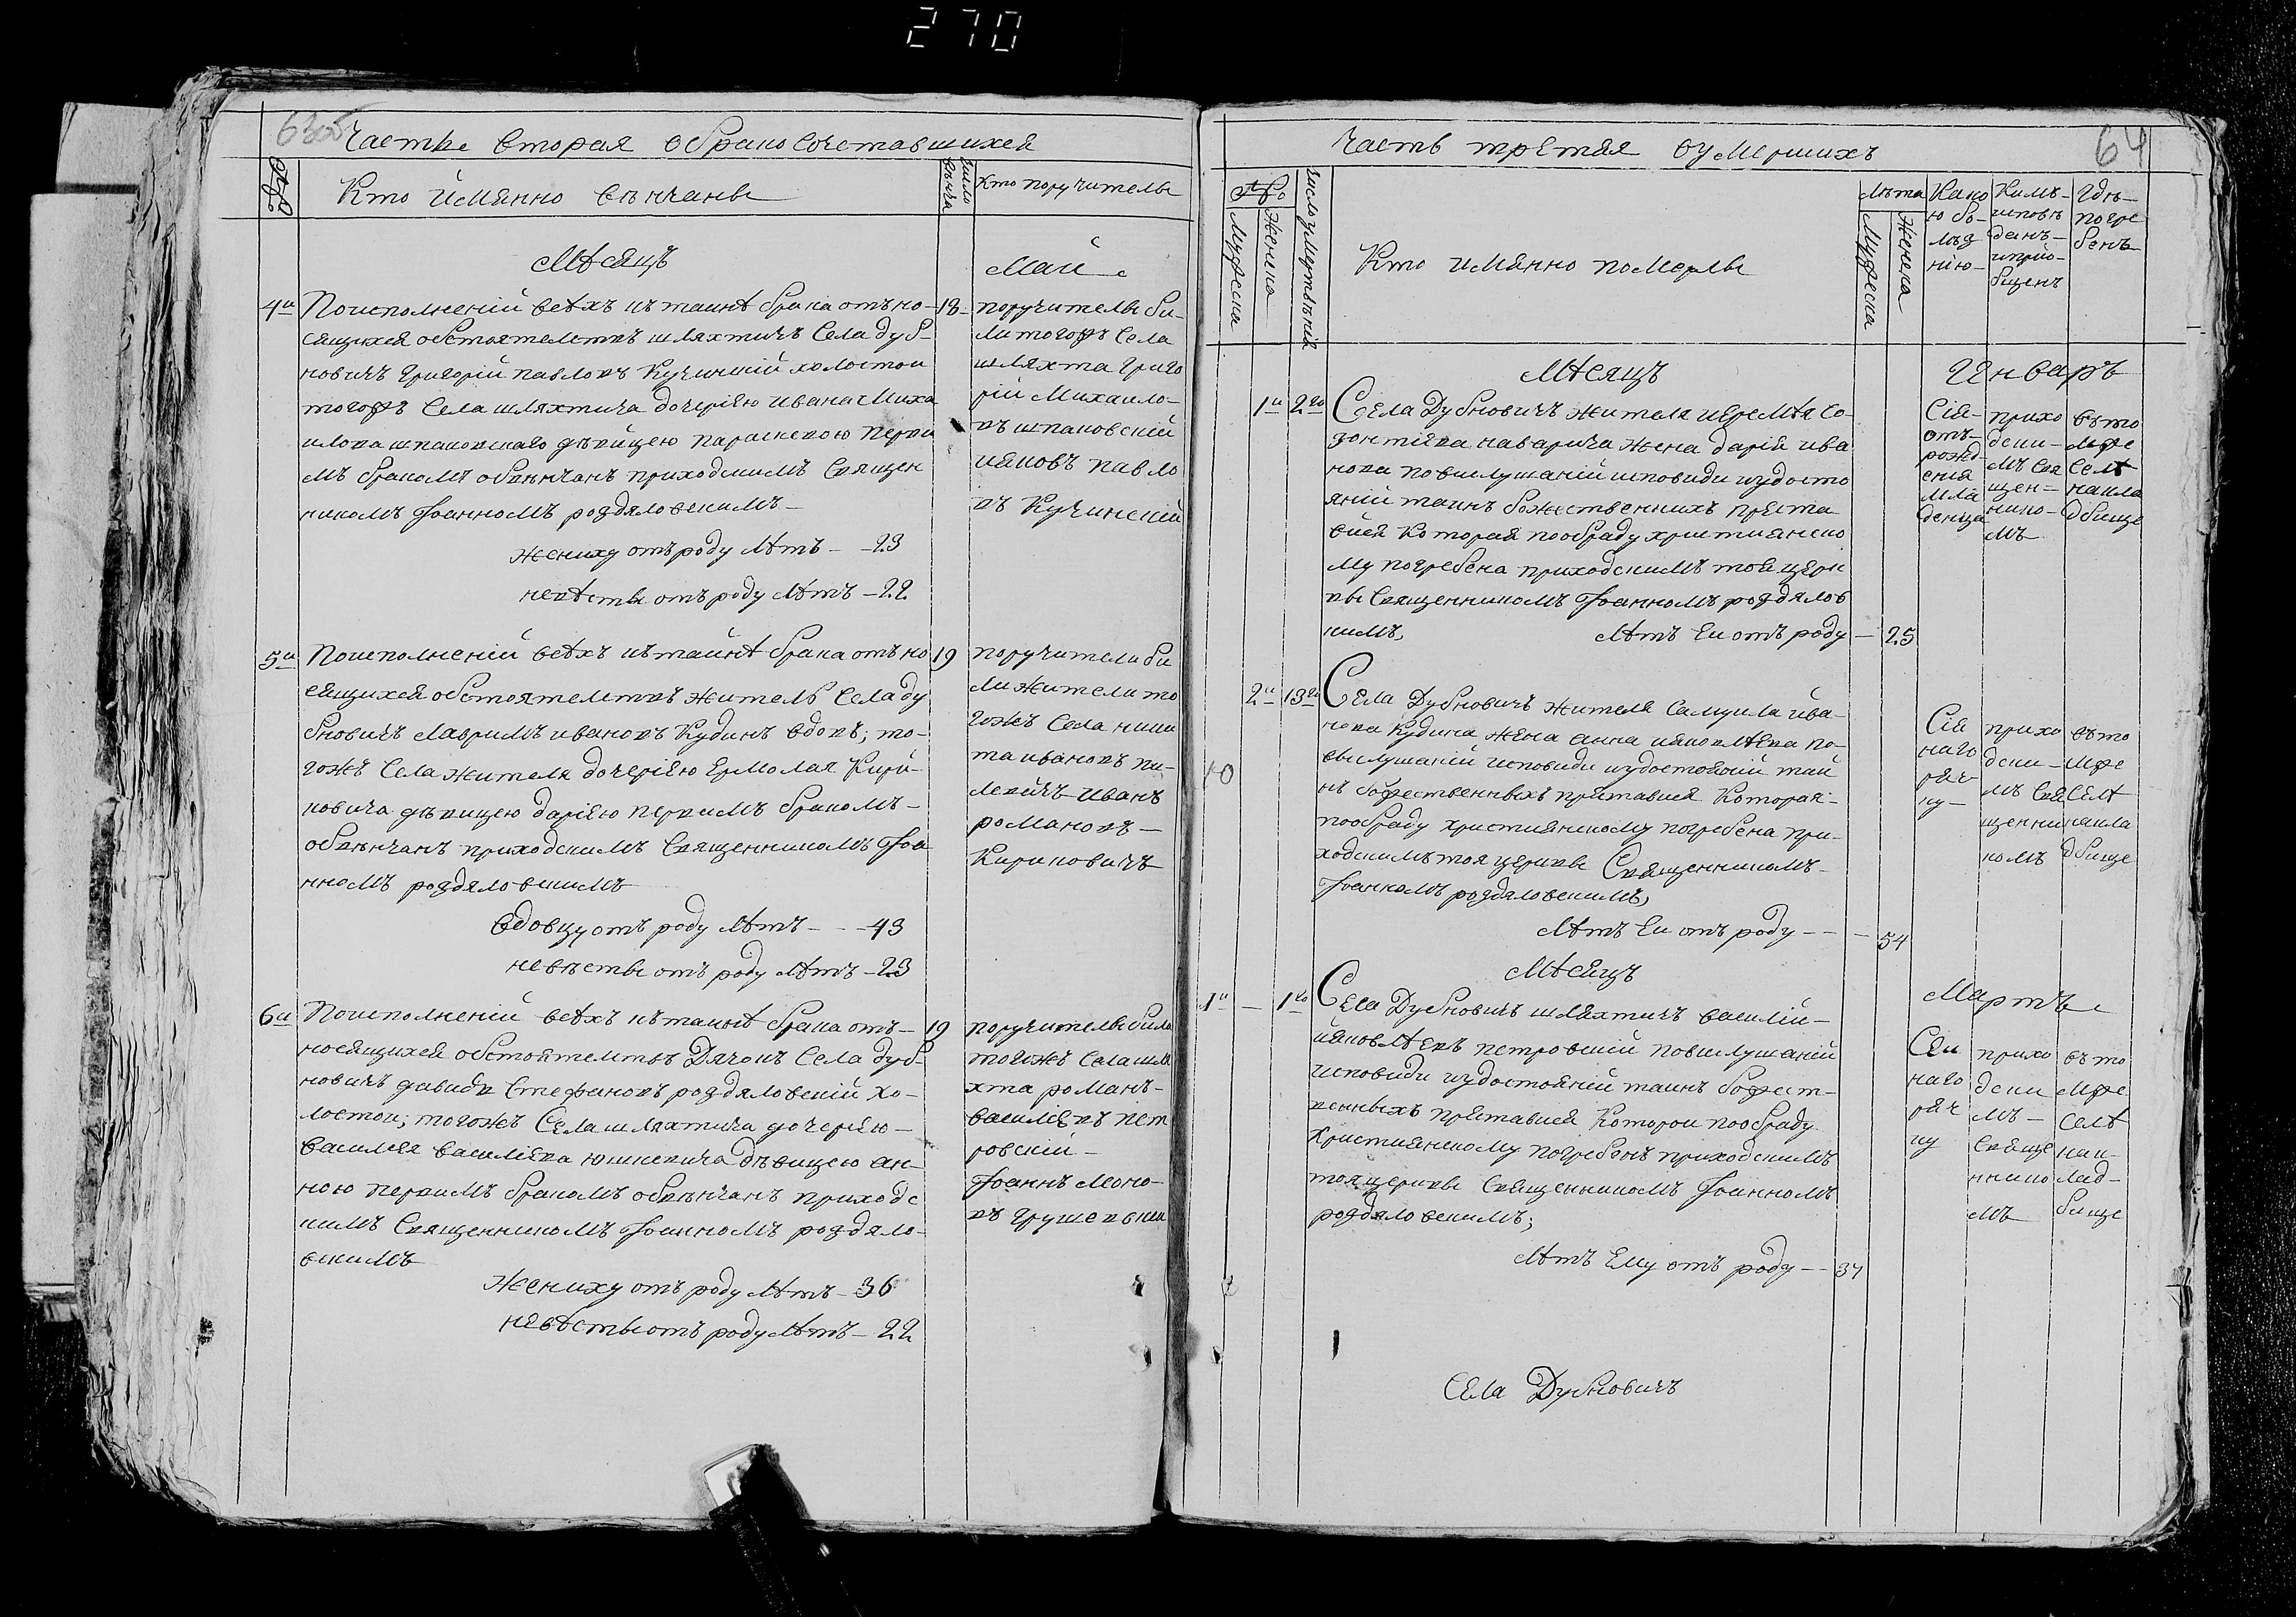 270
Часть вторая о бракосочетавшихся
№
Кто Имянно венчаны
число венча
Кто поручители
Мѣсяцъ
Май
4й По исполненіи всѣхъ къ таинѣ брака отъно-
18
сящихся обстоятелствъ шляхтичъ Села дуб-
новичъ Григорій павловъ Кучинскій холостои
тогожъ Села шляхтича дочерѣю ивана Миха
илова шпаковскаго дѣвицею параскевою перви
мъ бракомъ обвѣнчанъ приходскимъ Священ
никомъ Іоанномъ роздяловскимъ
жениху отъ роду лѣтъ - 23
невѣстѣ отъ роду лѣтъ - 22
поручители би-
ли тогожъ Села
шляхта Григо
рій Михаило-
въ шпаковскій
ияковъ павло
въ Кучинскій
5й По исполненіи всѣхъ къ таинѣ брака отъно
19
сящихся обстоятелствъ житель Села ду
бновичъ лавримъ ивановъ Кудинъ вдовъ; то-
гожъ Села жителя дочерѣю Ермолая Кири-
ковича дѣвицею даріею первимъ бракомъ-
обвѣнчанъ приходскимъ Священникомъ Іоа
нномъ роздяловскимъ
вдовцу отъ роду лѣтъ - - 43
невѣстѣ отъ роду лѣтъ - 23
поручители би
ли жители то
гожъ Села ники
та ивановъ
Иванъ
романовъ -
Кириковичъ
6й По исполненіи всѣхъ къ таинѣ брака отъ-
19
носящихся обстоятелствъ Дячокъ Села дуб-
новичъ давидъ Стефановъ роздяловскій хо-
лостои; тогожъ Села шляхтича дочерѣю-
василія василіева юшкевича дѣвицею ан-
ною первимъ бракомъ обвѣнчанъ приходс
кимъ Священникомъ Іоанномъ роздяло-
вскимъ
Жениху отъ роду лѣтъ - 36
невѣстѣ отъ роду лѣтъ - 22
поручители били
тогожъ Села шля
хта романъ-
василѣвъ пет
ровскій -
Іоаннъ
въ Грушевскій
64
Часть третяя о умершихъ
№
Мужеска
Женска
число умертвѣній
Кто имянно померлы
Лѣта
Мужеска
Женска
Како
ю бо-
лѣз
нію-
Кимъ-
исповѣ
данъ-
и прио-
бщенъ
Гдѣ-
погре
бенъ
Мѣсяцъ
Январъ
1й 2го Села Дубновичъ жителя иеремѣя со-
зонтіева каварича жена дарія ива
нова по вислушаніи исповиди и удосто
яніи таинъ божественнихъ преста
вися Которая по обраду християнско
му погребена приходскимъ тоя церк
вы Священникомъ Іоанномъ роздялов
кимъ, лѣтъ Ей отъ роду - 25
Сія-
отъ-
рожд
енія
мла
денца
прихо
дски-
мъ свя
щен-
нико-
мъ
въ то
мже
Селѣ
на кла
дбище
2й 13го Села Дубновичъ жителя Самуила ива-
нова Кудина жена анна ияковлѣва по-
вислушаніи исповиди и удостояніи таи
нъ божественныхъ преставися Которая-
по обраду християнскому погребена при-
ходскимъ тоя церквы Священникомъ-
Іоанномъ роздяловскимъ,
лѣтъ Ей отъ роду - - - 54
Сія
наго
ряч
ку-
прихо
дски-
мъ Свя
щенни
комъ
въ то
мже
Селѣ
на кла
дбище
Мѣсяцъ
Мартъ
1й - 1го Села Дубновичъ шляхтичъ василій-
ияковлѣвъ петровскій по вислушаніи
исповиди и удостояніи таинъ божест-
венныхъ преставися Которои по обраду
християнскому погребенъ приходскимъ
тоя церквы Священникомъ Іоанномъ
роздяловскимъ;
лѣтъ Ему отъ роду - - 37
Сеи
наго
ряч
ку
прихо
дски
мъ -
Свяще
ннико
мъ
въ то
мже
Селѣ
на к-
лад-
бище
Села Дубновичъ